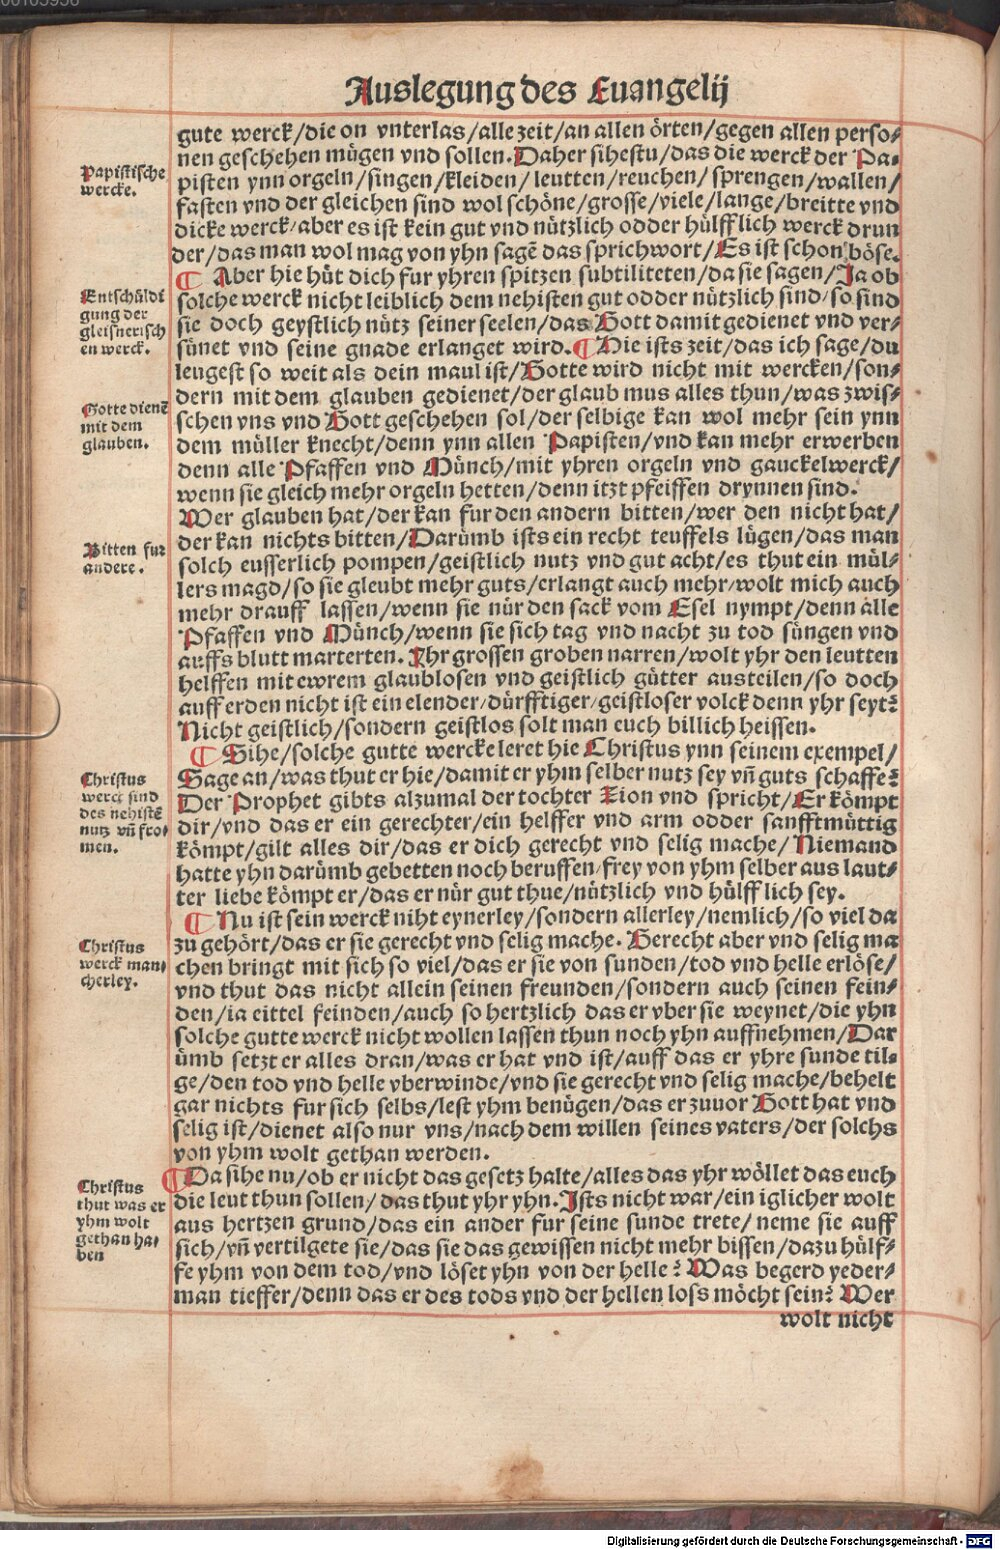 Auslegung des Euangelij
gute werck/die on vnterlas/alle zeit/an allen örten/gegen allen perso⸗
nen geschehen mügen vnd sollen. Daher sihestu/das die werck der Pa⸗
pisten ynn orgeln/singen/kleiden/leutten/reuchen/sprengen/wallen/
fasten vnd der gleichen sind wol schöne/grosse/viele/lange/breitte vnd
dicke werck/aber es ist kein gut vnd nützlich odder hülfflich werck drun
der/das man wol mag von yhn sagē das sprichwort/Es ist schon böse.
¶ Aber hie hüt dich fur yhren spitzen subtiliteten/da sie sagen/Ja ob
solche werck nicht leiblich dem nehisten gut odder nützlich sind/so sind
sie doch geystlich nütz seiner seelen/das Gott damit gedienet vnd ver⸗
sünet vnd seine gnade erlanget wird. ¶ Hie ists zeit/das ich sage/du
leugest so weit als dein maul ist/Gotte wird nicht mit wercken/son⸗
dern mit dem glauben gedienet/der glaub mus alles thun/was zwis⸗
schen vns vnd Gott geschehen sol/der selbige kan wol mehr sein ynn
dem müller knecht/denn ynn allen Papisten/vnd kan mehr erwerben
denn alle Pfaffen vnd Münch/mit yhren orgeln vnd gauckelwerck/
wenn sie gleich mehr orgeln hetten/denn itzt pfeiffen drynnen sind.
Wer glauben hat/der kan fur den andern bitten/wer den nicht hat/
der kan nichts bitten/Darümb ists ein recht teuffels lügen/das man
solch eusserlich pompen/geistlich nutz vnd gut acht/es thut ein mül⸗
lers magd/so sie gleubt mehr guts/erlangt auch mehr/wolt mich auch
mehr drauff lassen/wenn sie nür den sack vom Esel nympt/denn alle
Pfaffen vnd Münch/wenn sie sich tag vnd nacht zu tod süngen vnd
auffs blutt marterten. Ihr grossen groben narren/wolt yhr den leutten
helffen mit ewrem glaublosen vnd geistlich gütter austeilen/so doch
auff erden nicht ist ein elender/dürfftiger/geistloser volck denn yhr seyt?
Nicht geistlich/sondern geistlos solt man euch billich heissen.
¶ Sihe/solche gutte wercke leret hie Christus ynn seinem exempel/
Sage an/was thut er hie/damit er yhm selber nutz sey vn̄ guts schaffe?
Der Prophet gibts alzumal der tochter Zion vnd spricht/Er kömpt
dir/vnd das er ein gerechter/ein helffer vnd arm odder sanfftmüttig
kömpt/gilt alles dir/das er dich gerecht vnd selig mache/Niemand
hatte yhn darümb gebetten noch beruffen/frey von yhm selber aus laut⸗
ter liebe kömpt er/das er nür gut thue/nützlich vnd hülfflich sey.
¶ Nu ist sein werck niht eynerley/sondern allerley/nemlich/so viel da
zu gehört/das er sie gerecht vnd selig mache. Gerecht aber vnd selig ma
chen bringt mit sich so viel/das er sie von sunden/tod vnd helle erlöse/
vnd thut das nicht allein seinen freunden/sondern auch seinen fein⸗
den/ia eittel feinden/auch so hertzlich das er vber sie weynet/die yhn
solche gutte werck nicht wollen lassen thun noch yhn auffnehmen/Dar
ümb setzt er alles dran/was er hat vnd ist/auff das er yhre sunde til⸗
ge/den tod vnd helle vberwinde/vnd sie gerecht vnd selig mache/behelt
gar nichts fur sich selbs/lest yhm benügen/das er zuuor Gott hat vnd
selig ist/dienet also nur vns/nach dem willen seines vaters/der solchs
von yhm wolt gethan werden.
¶ Da sihe nu/ob er nicht das gesetz halte/alles das yhr wöllet das euch
die leut thun sollen/das thut yhr yhn. Ists nicht war/ein iglicher wolt
aus hertzen grund/das ein ander fur seine sunde trete/neme sie auff
sich/vn̄ vertilgete sie/das sie das gewissen nicht mehr bissen/dazu hülf⸗
fe yhm von dem tod/vnd löset yhn von der helle? Was begerd yeder⸗
man tieffer/denn das er des tods vnd der hellen loss möcht sein? Wer
wolt nicht
Papistische
wercke.
Entschüldi
gung der
gleisnerisch
en werck.
Gotte dienē
mit dem
glauben.
Bitten fur
andere.
Christus
werck sind
des nehistē
nutz vn̄ fro⸗
men.
Christus
werck man⸗
cherley.
Christus
thut was er
yhm wolt
gethan ha⸗
ben
Digitalisierung gefördert durch die Deutsche Forschungsgemeinschaft - DFG